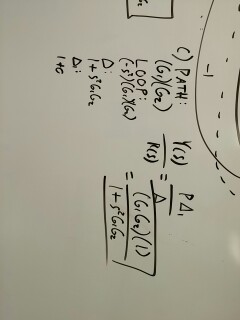 -1
C) PATH:
(G₁)(G₂)
LOOP:
(-s²)(G₁)(G₂)
Δ:
1+s²G₁G₂
Δ₁:
Y(s)/R(s) = PΔ₁/Δ
= (G₁G₂)(1)/1+s²G₁G₂